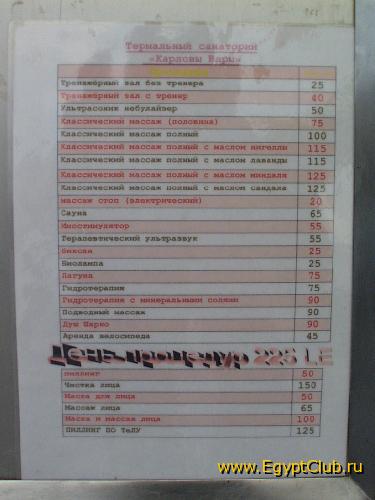 Термальный санаторий
«Карловы Вары»
Тренажёрный зал без тренера 25
Тренажёрный зал с тренер 40
Ультрасоник небулайзер 50
Классический массаж (половина) 75
Классический массаж полный 100
Классический массаж полный с маслом нигеллы 115
Классический массаж полный с маслом лаванды 115
Классический массаж полный с маслом миндаля 125
Классический массаж полный с маслом сандала 125
массаж стоп (электрический) 20
Сауна 65
Миостимулятор 55
Терапевтический ультразвук 55
25
Биолампа 25
Лагуна 75
Гидротерапия 75
Гидротерапия с минеральными солями 90
Подводный массаж 90
Душ Шарко 90
Аренда велосипеда 45
День процедур 225 LE
пиллинг 50
Чистка лица 150
Маска для лица 50
Массаж лица 65
Маска и массаж лица 100
ПИЛЛИНГ ПО ТеЛУ 125
www.EgyptClub.ru